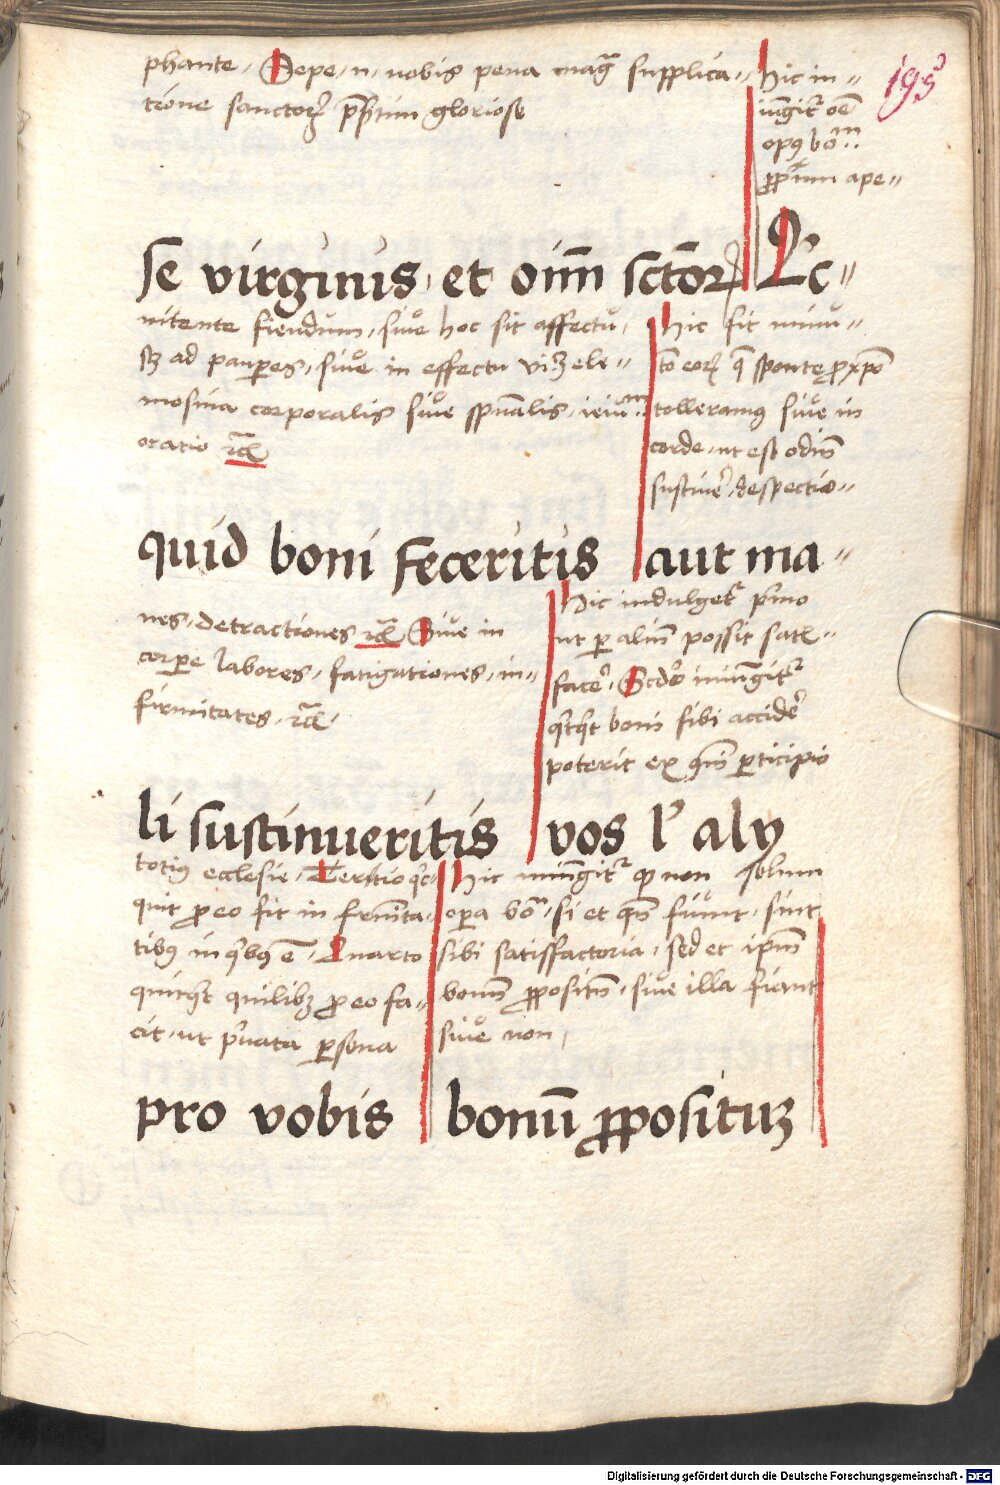 phante. Sepe .n. nobis pena mag̃ supplica=
tione sanctoꝝ p̃sertim gloriose
hic in=
iũgit̃ oẽ
opꝰ boᵐ
ꝓpriũm ape=
195
se virginis et oīm sctōꝝ Et
nitente fiendum, siue hoc sit affectu,
sꝫ ad pauꝑes, siue in effectu viꝫ ele=
mosina corporalis siue spũalis, ieiuᵐ
oratio ꝛc̃
hic fit
eoꝝ q̃ sponte ꝓ xp̃o
tolleramus siue in
corde, ut est odiũ
sustiner̃, despectio=
quid boni feceritis aut ma=
nes, detractiones ꝛc̃ Siue in
corꝑe labores, fatigationes, in=
firmitates, ꝛc̃.
hic indulget̃ pͥmo
ut ꝑ aliũ possit satis=
facer̃. Scdo iniũgit̃
qͥcqͥt boni sibi accider̃
poterit ex ꝑticipio
li sustinueritis vos lꝰ alij
totiꝰ ecclesie, Tertio qͥc=
quit ꝓ eo fit in fr̃nita=
tibꝰ in qͥbꝰ ẽ. Quarto
quicqͥt quilibꝫ ꝓ eo fa=
cit, ut pͥuata ꝑsona
hic iniũgit̃ ꝙ non solum
oꝑa boᵃ, si et qñ fiunt, sint
sibi satisfactoria, sed et ip̃m
bonũ ꝓpositũ, siue illa fiant
siue non,
pro vobis bonũ ꝓposituꝫ
Digitalisierung gefördert durch die Deutsche Forschungsgemeinschaft - DFG